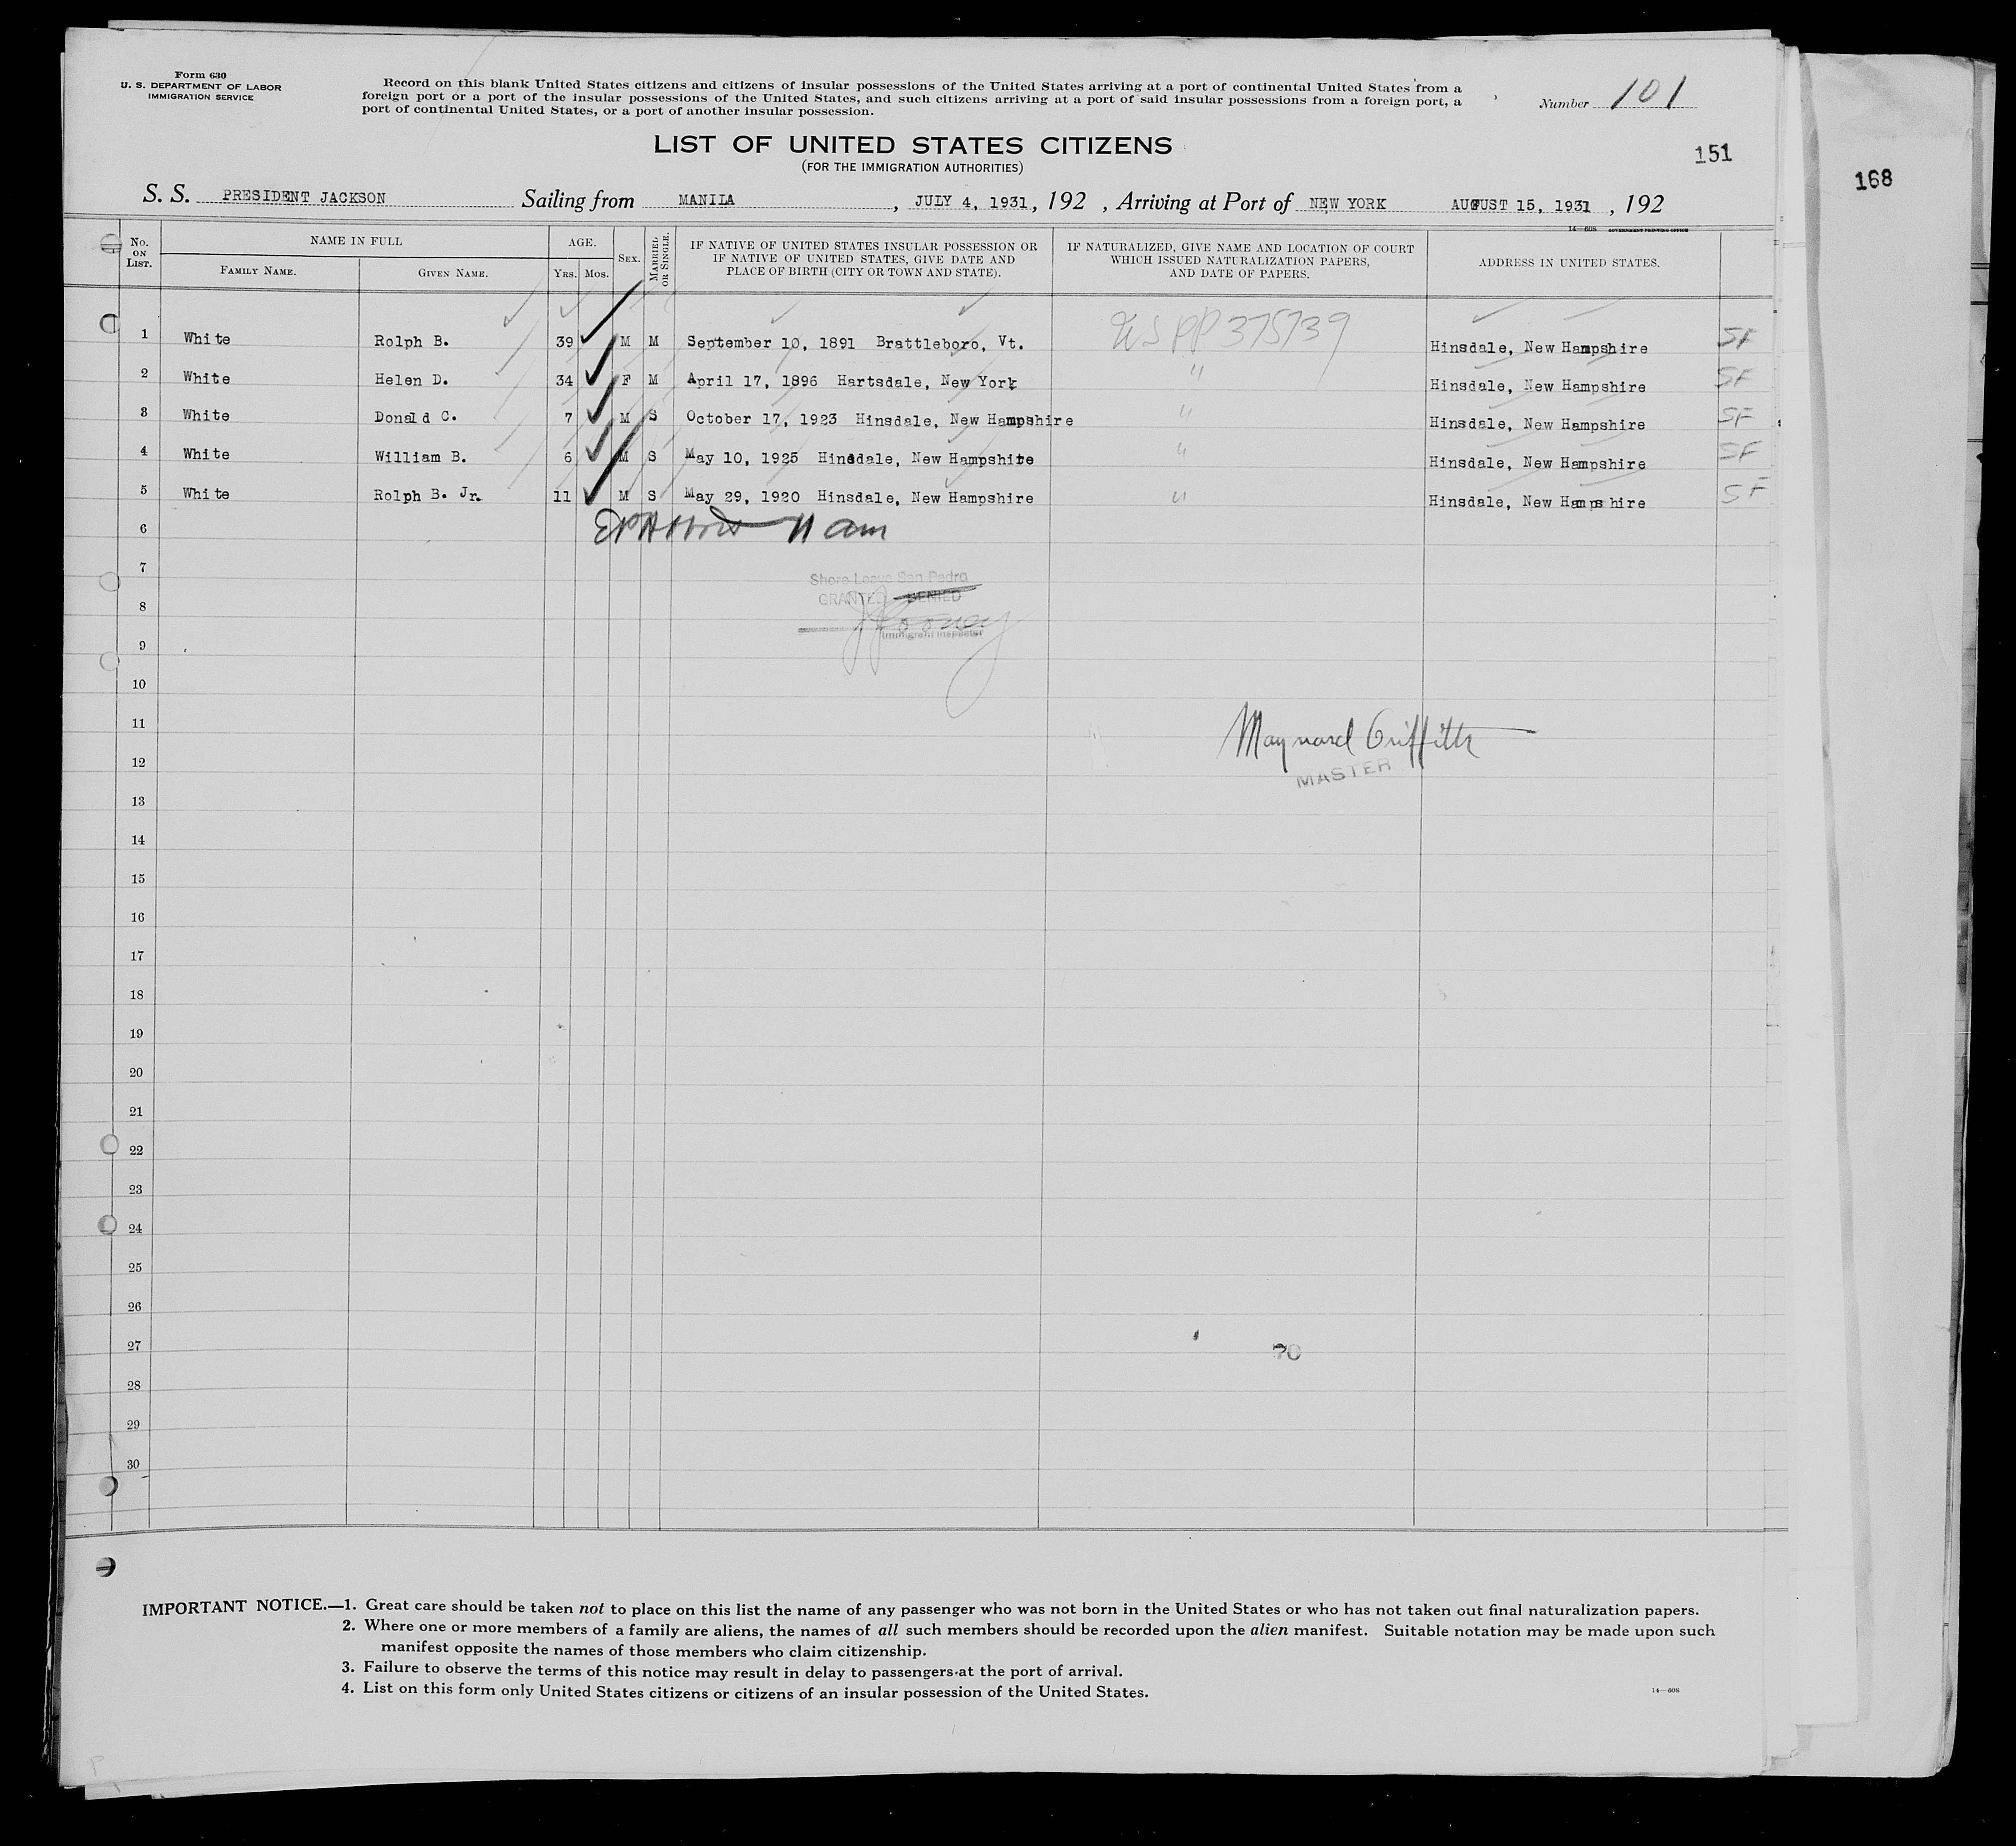 Form 630
U. S. DEPARTMENT OF LABOR
IMMIGRATION SERVICE
Record on this blank United States citizens and citizens of insular possessions of the United States arriving at a port of continental United States from a
foreign port or a port of the insular possessions of the United States, and such citizens arriving at a port of said insular possessions from a foreign port, a
port of continental United States, or a port of another insular possession.
Number 101
LIST OF UNITED STATES CITIZENS
(FOR THE IMMIGRATION AUTHORITIES)
151
168
S. S. PRESIDENT JACKSON Sailing from MANILA, JULY 4, 1931, 192 , Arriving at Port of NEW YORK AUGUST 15, 1931, 192
14—608 GOVERNMENT PRINTING OFFICE
No. ON LIST. NAME IN FULL AGE. SEX. MARRIED OR SINGLE. IF NATIVE OF UNITED STATES INSULAR POSSESSION OR IF NATIVE OF UNITED STATES, GIVE DATE AND PLACE OF BIRTH (CITY OR TOWN AND STATE). IF NATURALIZED, GIVE NAME AND LOCATION OF COURT WHICH ISSUED NATURALIZATION PAPERS, AND DATE OF PAPERS. ADDRESS IN UNITED STATES.
FAMILY NAME. GIVEN NAME. YRS. MOS.
1 White Rolph B. 39 M M September 10, 1891 Brattleboro, Vt. US PP 375739 Hinsdale, New Hampshire SF
2 White Helen D. 34 F M April 17, 1896 Hartsdale, New York " Hinsdale, New Hampshire SF
3 White Donald C. 7 M S October 17, 1923 Hinsdale, New Hampshire " Hinsdale, New Hampshire SF
4 White William B. 6 M S May 10, 1925 Hinsdale, New Hampshire " Hinsdale, New Hampshire SF
5 White Rolph B. Jr. 11 M S May 29, 1920 Hinsdale, New Hampshire " Hinsdale, New Hampshire SF
6 11 am
7
Shore Leave San Pedro
GRANTED DENIED
8
Immigrant Inspector
9
10
11
Maynard Griffith
MASTER
12
13
14
15
16
17
18
19
20
21
22
23
24
25
26
27
70
28
29
30
IMPORTANT NOTICE.—1. Great care should be taken not to place on this list the name of any passenger who was not born in the United States or who has not taken out final naturalization papers.
2. Where one or more members of a family are aliens, the names of all such members should be recorded upon the alien manifest. Suitable notation may be made upon such
manifest opposite the names of those members who claim citizenship.
3. Failure to observe the terms of this notice may result in delay to passengers at the port of arrival.
4. List on this form only United States citizens or citizens of an insular possession of the United States.
14—608